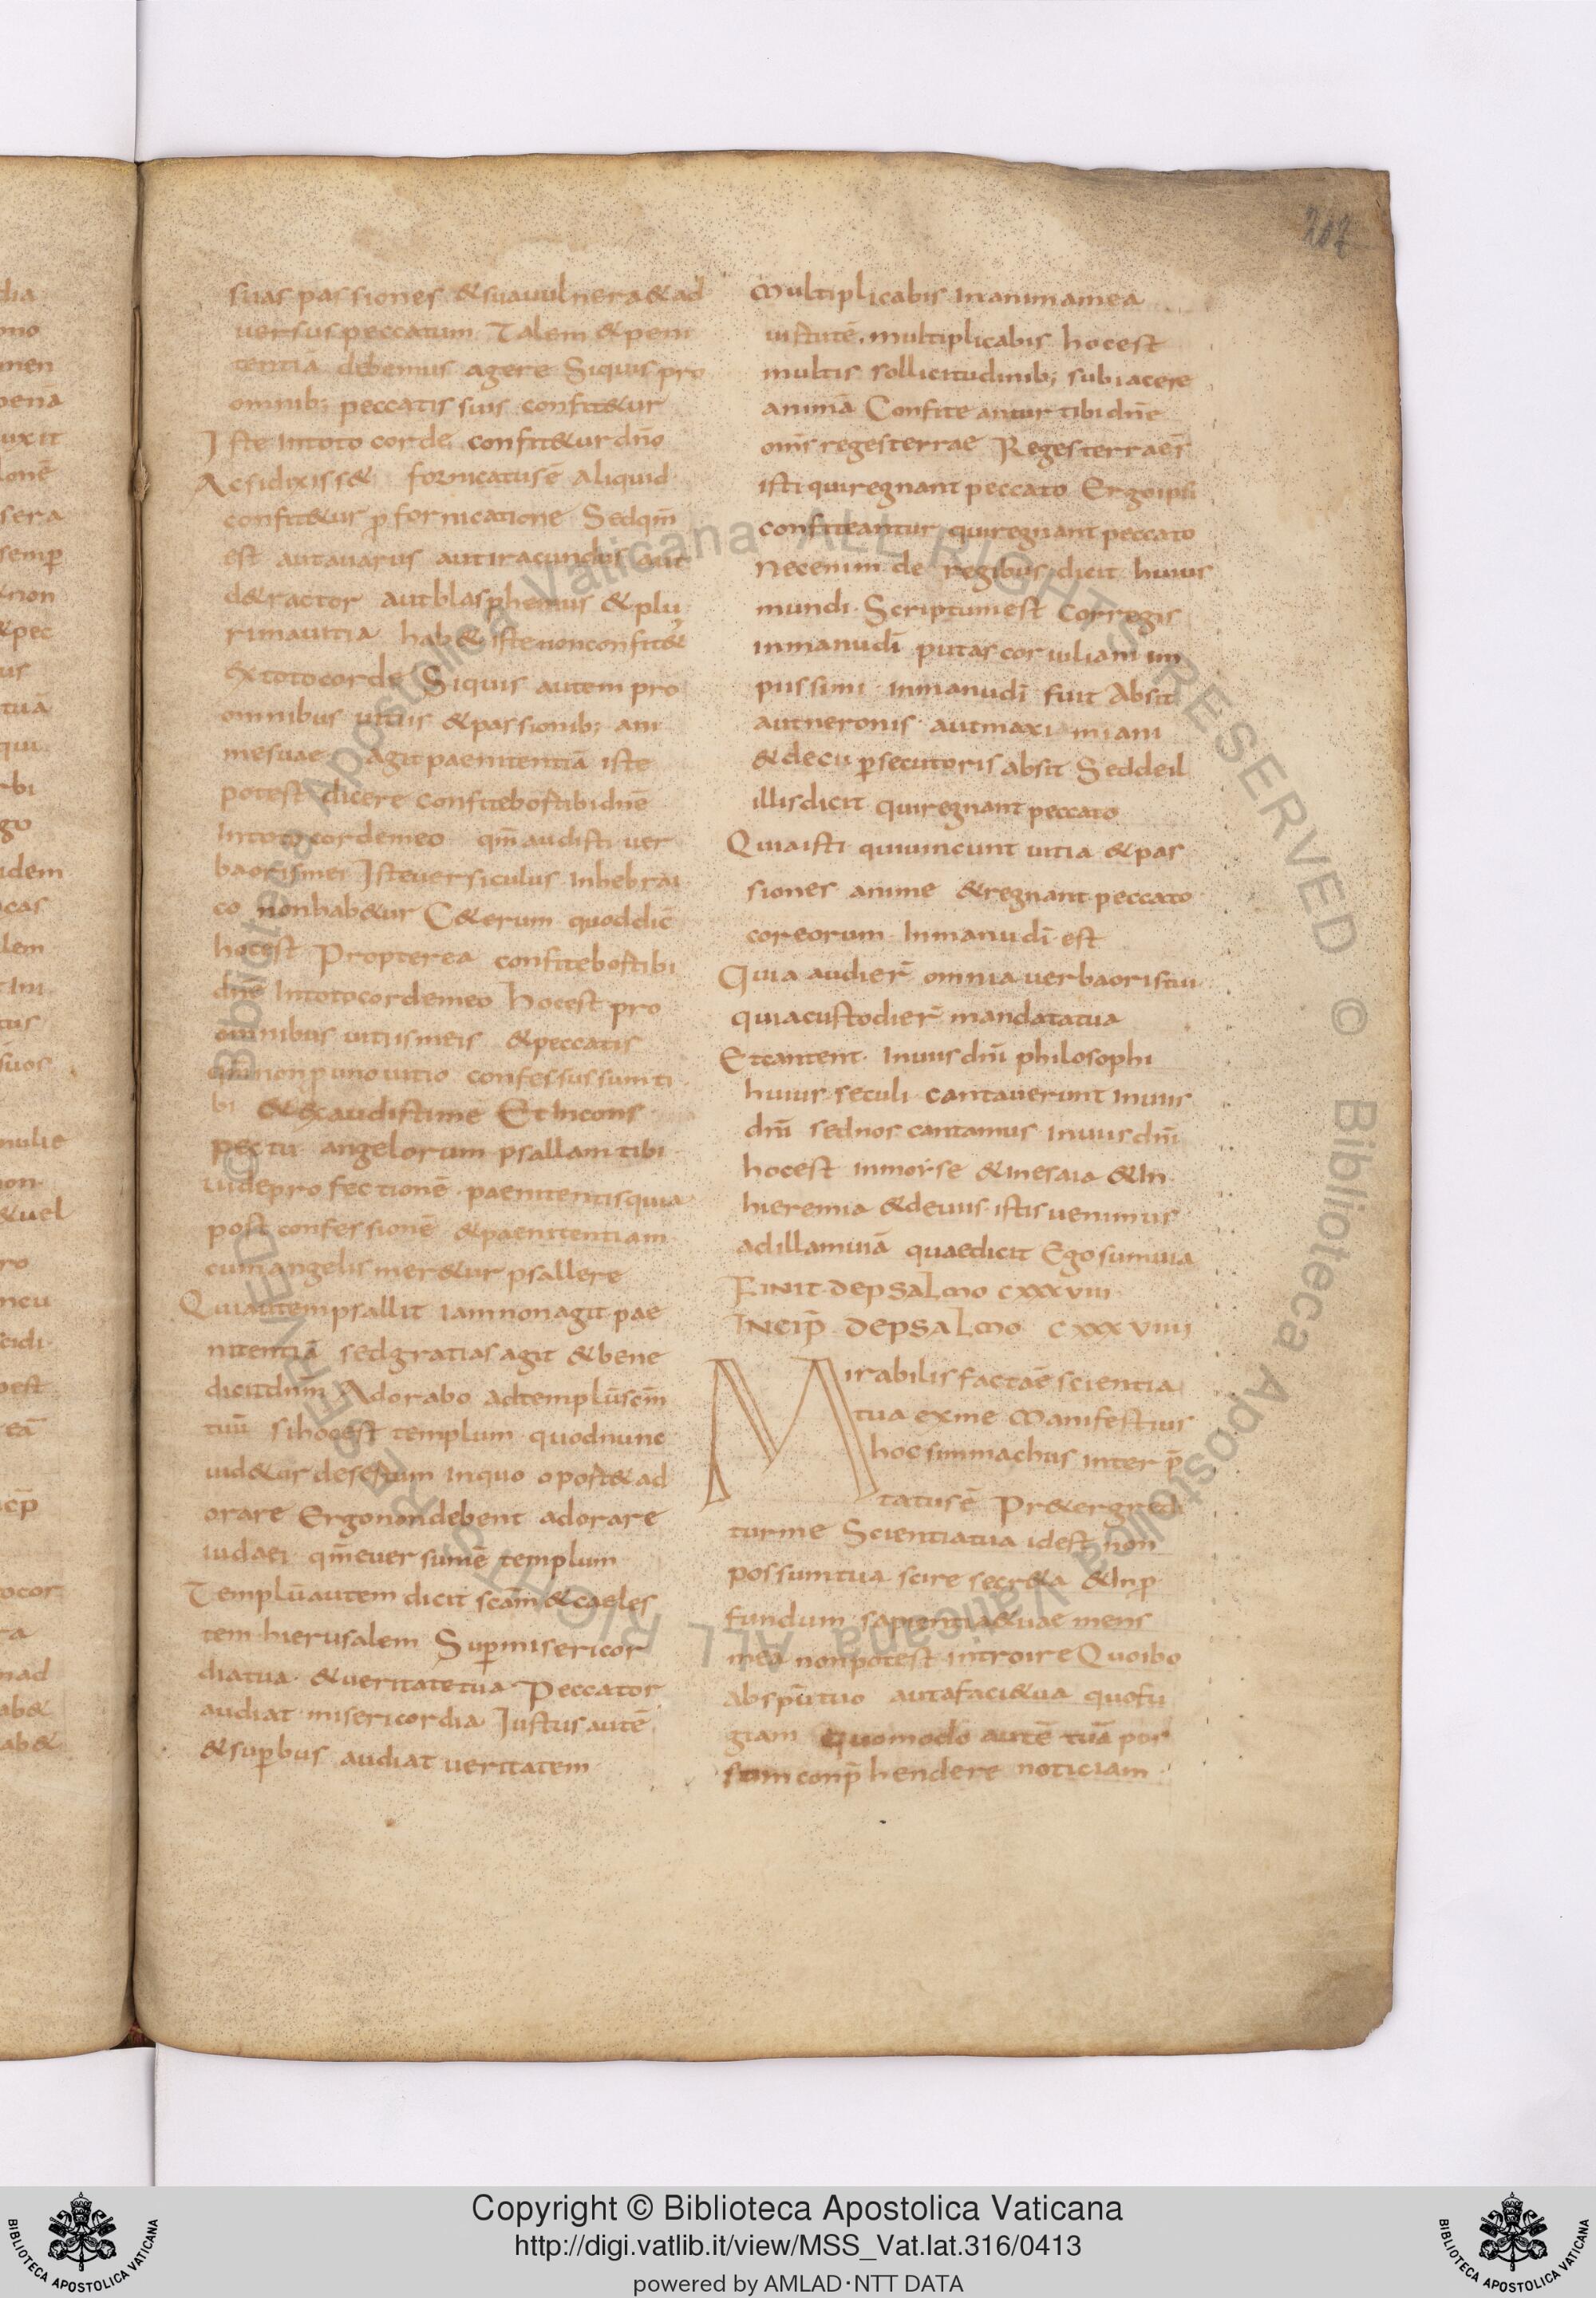 207
suas passiones &suauulnera&ad
uersus peccatum Talem &peni
tentiā debemus agere Siquis pro
omnib; peccatis suis confit&ur
Iste intoto corde confit&ur dn̄o
Acsidixiss& fornicatusē aliquid
confit&ur ꝓ fornicatione Sedqm̄
est autauarus autiracundus aut
d&ractor autblasphemus &plu
rimauitia hab& istenonconfit&
extotocorde Siquis autem pro
omnibus uitiis &passionib; ani
mesuae agit paenitentiā iste
potest dicere confiteboꝛtibidnē
Intoto cordemeo qm̄ audisti uer
baorismei Isteuersiculus inhebrai
co nonhab&ur C&erum quoddic̄
hocest Propterea confitebortibi
dnē intotocordemeo hocest pro
omnibus uitiismeis &peccatis
qm̄nonꝑunouitio confessussumti
bi &exaudistime Et incons
pectu angelorum psallam tibi
uideprofectionē paenitentisquia
post confessionē &paenitentiam
cumangelis mer&ur psallere
Quiautempsallit iamnonagit pae
nitentiā sedgratiasagit &bene
dicitdnm̄ Adorabo adtemplūscm̄
tuū sihocest templum quodnunc
uid&ur desertum inquo oport&ad
orare Ergonondebent adorare
iudaei qm̄euersumē templum
Templūautem dicit scam̄ &caeles
tem hierusalem Suꝑmisericor
diatua &ueritatetua Peccator
audiat misericordia Iustus autē
&suꝑbus audiat ueritatem
Multiplicabis inanimamea
uirtutē multiplicabis hocest
multis sollicitudinib; subiacere
animā Confiteantur tibi dnē
om̄s regesterrae Regesterraes̄
isti quiregnant peccato Ergoipsi
confiteantur quiregnant peccato
Necenim de regibus dicit huius
mundi Scriptumest Corregis
inmanudī putas cor iuliani im
piissimi inmanudī fuit Absit
autneronis autmaxi miani
&decii ꝑsecutoris absit Seddeil
illisdicit quiregnant peccato
Quiaisti quiuincunt uitia &pas
siones anime &regnant peccato
coreorum inmanudī est
Quia audier̄ omnia uerbaoristui
quiacustodier̄ mandatatua
Etcantent inuiisdnī philosophi
huius seculi cantauerunt inuiis
dnī sednos cantamus inuiisdnī
hocest inmorse &inesaia &in
hieremia &deuiis istis uenimus
adillamuiā quaedicit Ego sumuia
FINIT DEPSALMO CXXXVIII
INCIP̄ DEPSALMO CXXXVIIII
Mirabilis factaē scientia
tua exme Manifestius
hocsimmachus interp̄
tatusē Pr&ergredi
turme Scientiatua idest non
possumtua scire secr&a &inꝓ
fundum sapientia&uae mens
mea nonpotest introire Quoibo
abspūtuo autafaci&ua quofu
giam Quomodo autē tuā pos
sum conp̄hendere noticiam
Copyright © Biblioteca Apostolica Vaticana
http://digi.vatlib.it/view/MSS_Vat.lat.316/0413
powered by AMLAD·NTT DATA